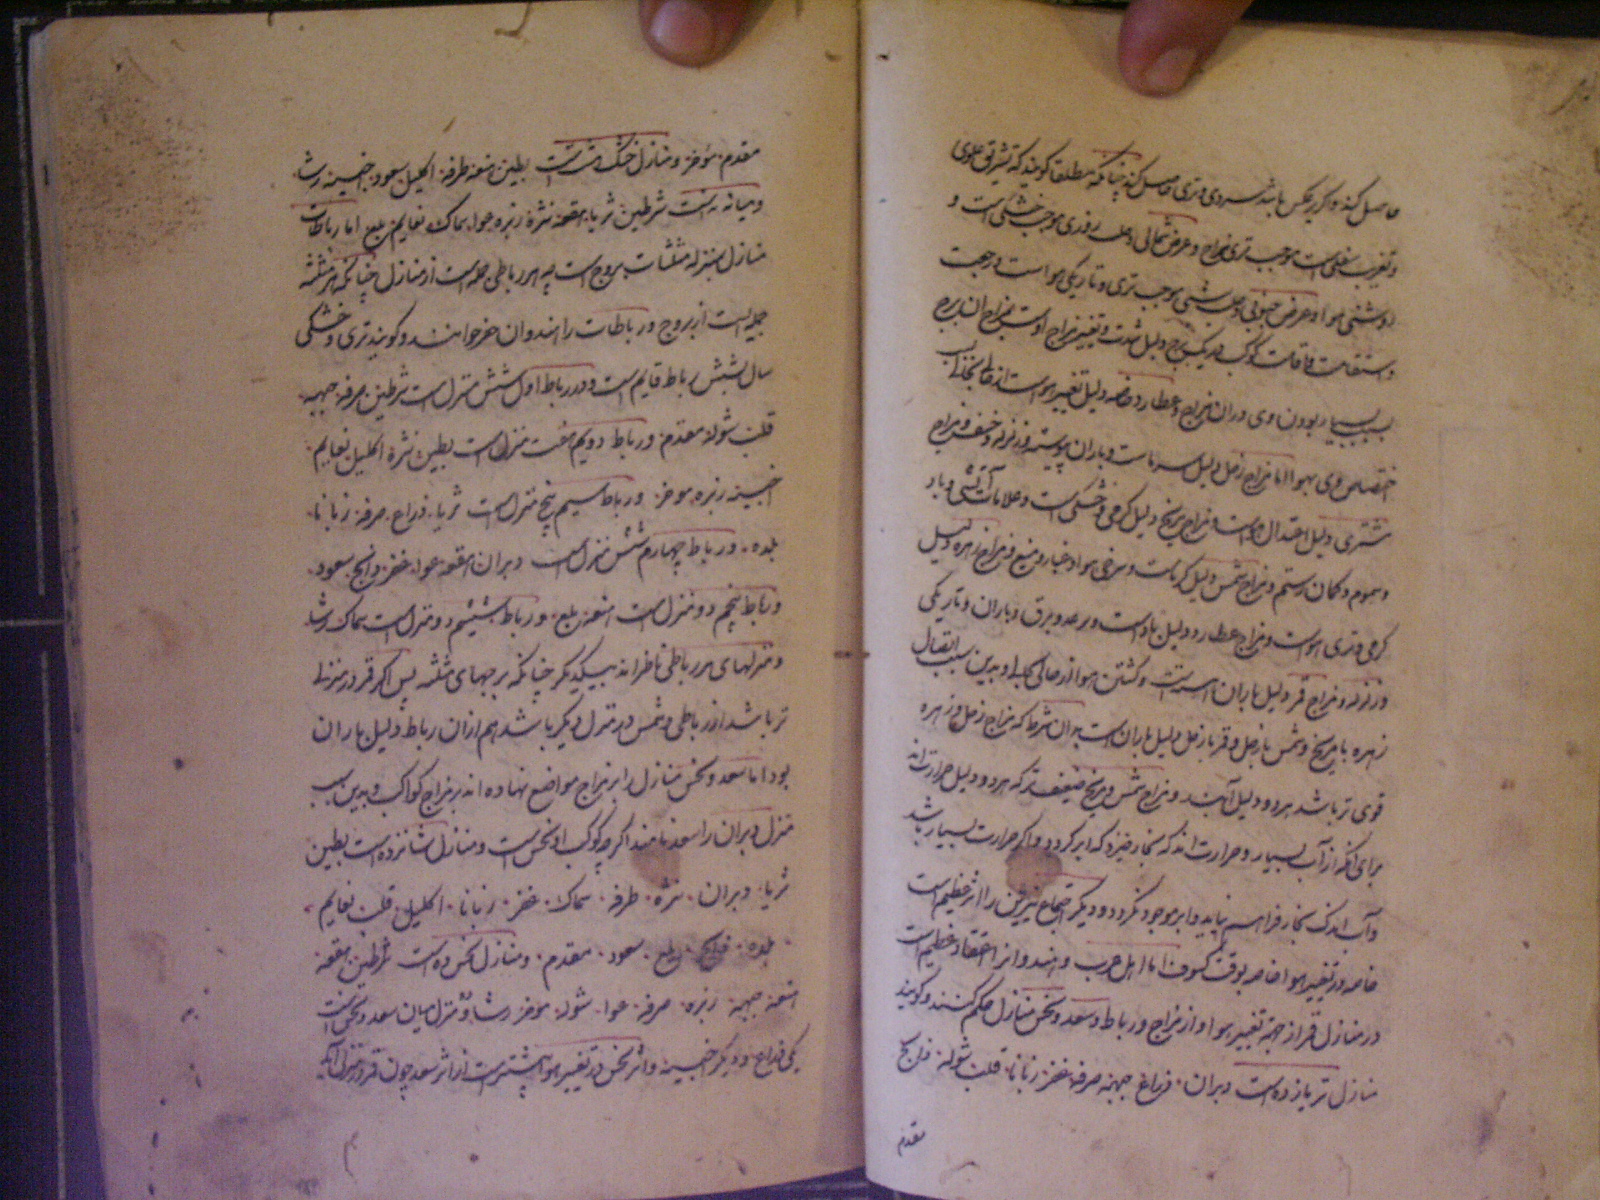 حاصل کند و اکر برعکس باشد سردی و تری حاصل کند چنانکه مطلقا کویند که تشریق علوی
و تغریب سفلی است موجب تری مزاج و عرض شمالی و روزی موجب خشکی است و
روشنی هوا و عرض جنوبی و شبی موجب تری و تاریکی هوا است و رجعت
و استقامت و اقامت کوکب در یک برج دلیل شدت و تغییر مزاج اوست بمزاج ان برج
بسبب بسیار بودن وی در ان مزاج و عطارد خاصه دلیل تغییر هواست
اختصاص وی بهوا اما مزاج زحل دلیل سرماست و باران پیوسته و زلزله و خسف و مزاج
مشتری دلیل اعتدال هواست و مزاج مریخ دلیل کرمی و خشکی است و علامات آتشی و باد
و سموم و کمان رستم و مزاج شمس دلیل کرماست و سرخی هوا و غبار و میغ و مزاج زهره دلیل
کرمی و تری هواست و مزاج عطارد دلیل باد است و رعد و برق و باران و تاریکی
و زلزله و مزاج قمر دلیل باران است و کشتن هوا از حالی بحالی و بدین سبب اتصال
زهره با مریخ و شمس با زحل و قمر با زحل دلیل باران است بدان شرط که مزاج زحل و زهره
قوی تر باشد هر دو دلیل آبند و مزاج شمس و مریخ ضعیف تر که هر دو دلیل حرارت اند
برای آنکه از آب بسیار و حرارت اندک بخار خیزد که ابر کردد و اکر حرارت بسیار باشد
و آب اندک بخار فراهم نیاید و ابر موجود نکردد و دیکر اجتماع نیرین را اثر عظیم است
خاصه در تغییر هوا خاصه بوقت کسوف اما اهل عرب و هند و انرا اعتقاد عظیم است
در منازل قمر از جهة تغییر هوا و از مزاج و رباط و سعد و نحس منازل حکم کنند و کویند
منازل تر یازده است دبران ۰ ذراع جبهه صرفه غفر زبانا ۰ قلب شوله ۰ فاتح
مقدم
مقدم ۰ مؤخر و منازل خشک است بطین هنعه طرفه ۰ اکلیل سعود ۰ اخبیه رشا ۰
و میانه است شرطین ثریا ۰ هقعه نثره زبره عوا ۰ سماک نعایم بلع اما رباطات
منازل بمنزله مثلثات بروج است چه هر رباطی جمله است از منازل چنانکه هر مثلثه
جمله ایست از بروج و رباطات را هندوان خوانند و کویند تری و خشکی
سال بشش رباط قایم است و در رباط اول شش منزل است شرطین صرفه جبهه
قلب شوله مقدم ۰ و رباط دویم هفت منزل است بطین نثره اکلیل نعایم ۰
اخبیه زبره موخر ۰ و رباط سیم پنج منزل است ثریا ۰ ذراع ۰ طرفه زبانا ۰
بلده ۰ و رباط چهارم شش منزل است دبران هقعه عوا ۰ غفر ذابح ۰ سعود ۰
و رباط پنجم دو منزل است هنعه بلع ۰ و رباط ششم دو منزل است سماک رشا ۰
و منزلهای هر رباطی ناظر اند بیکدیکر چنانکه برجهای مثلثه پس اکر قمر در منزلی
تر باشد از رباطی و شمس در منزل دیکر باشد هم از ان رباط دلیل باران
بود اما سعد و نحس منازل را بر مزاج مواضع نهاده اند بر مزاج کواکب و بدین سبب
منزل دبران را سعد نامند اکر چه کوکب او نحس است و منازل سعد شانزده است بطین
ثریا ۰ دبران ۰ نثره ۰ طرفه ۰ سماک ۰ غفر ۰ زبانا ۰ اکلیل ۰ قلب نعایم ۰
بلده ۰ ذابح ۰ بلع ۰ سعود ۰ مقدم ۰ و منازل نحس ده است شرطین هقعه
هنعه جبهه ۰ زبره ۰ صرفه ۰ عوا ۰ شوله ۰ موخر رشا و دو منزل میان سعد و نحس است
یکی ذراع و دیکر اخبیه و اثر نحس در تغییر هوا بیشتر است از اثر سعد چون قمر در منزل آید